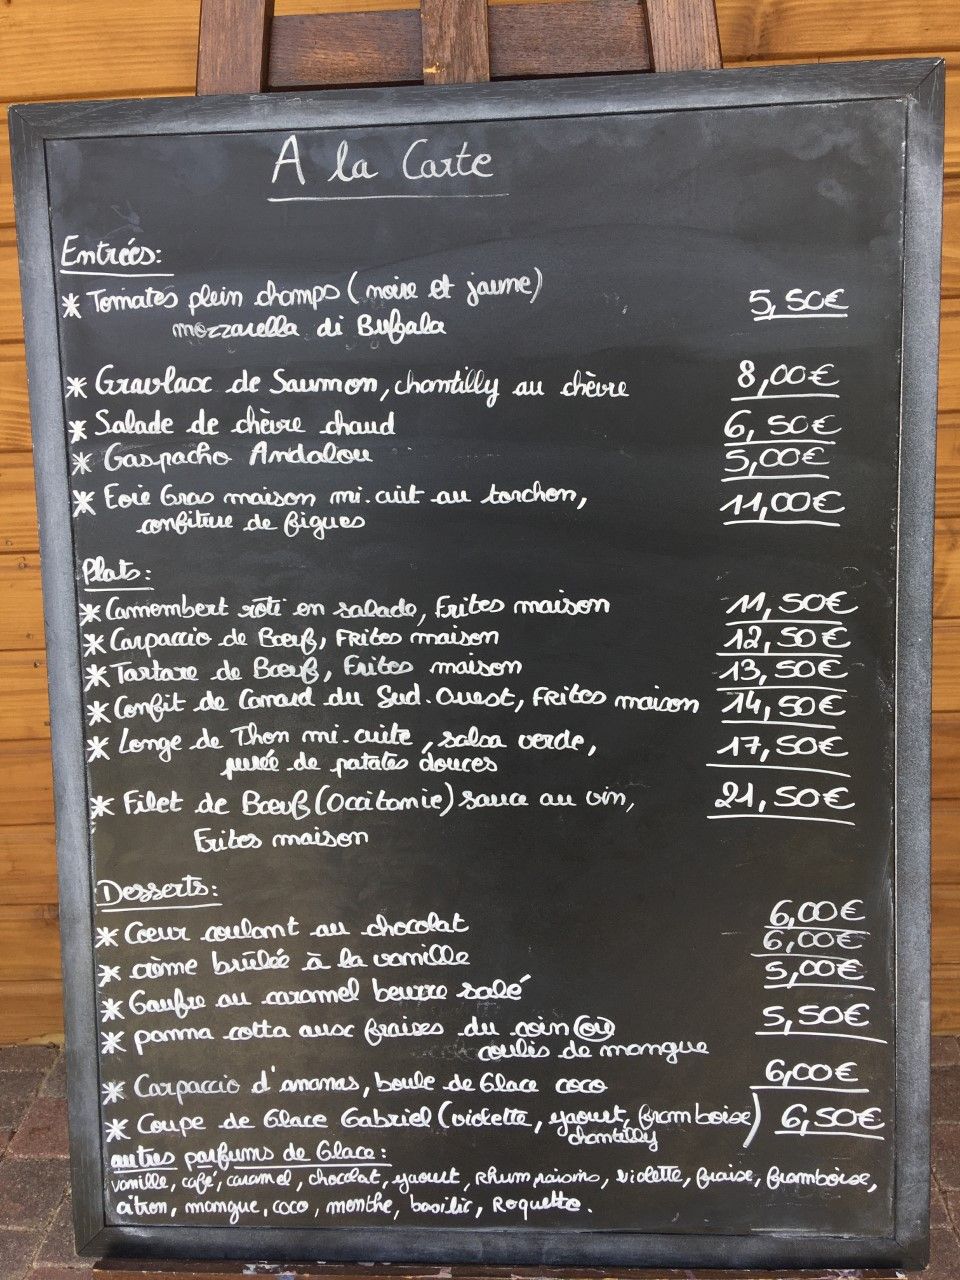 A la Carte
Entrées:
* Tomates plein champs (noire et jaune) 5,50€
mozzarella di Bufala
* Gravlax de Saumon, chantilly au chèvre 8,00€
* Salade de chèvre chaud 6,50€
* Gaspacho Andalou 5,00€
* Foie Gras maison mi-cuit au torchon, 11,00€
confiture de figues
Plats:
* Camembert rôti en salade, Frites maison 11,50€
* Carpaccio de Bœuf, Frites maison 12,50€
* Tartare de Bœuf, Frites maison 13,50€
* Confit de Canard du Sud-Ouest, Frites maison 14,50€
* Longe de Thon mi-cuite, salsa verde, 17,50€
purée de patates douces
* Filet de Bœuf (Occitanie) sauce au vin, 21,50€
Frites maison
Desserts:
* Coeur coulant au chocolat 6,00€
* crème brûlée à la vanille 6,00€
* Gaufre au caramel beurre salé 5,00€
* panna cotta aux fraises du coin (ou) 5,50€
coulis de mangue
* Carpaccio d'ananas, boule de Glace coco 6,00€
* Coupe de Glace Gabriel (violette, yaourt, framboise) 6,50€
chantilly
autres parfums de Glace:
vanille, café, caramel, chocolat, yaourt, Rhum raisins, violette, fraise, framboise,
citron, mangue, coco, menthe, basilic, Roquette.